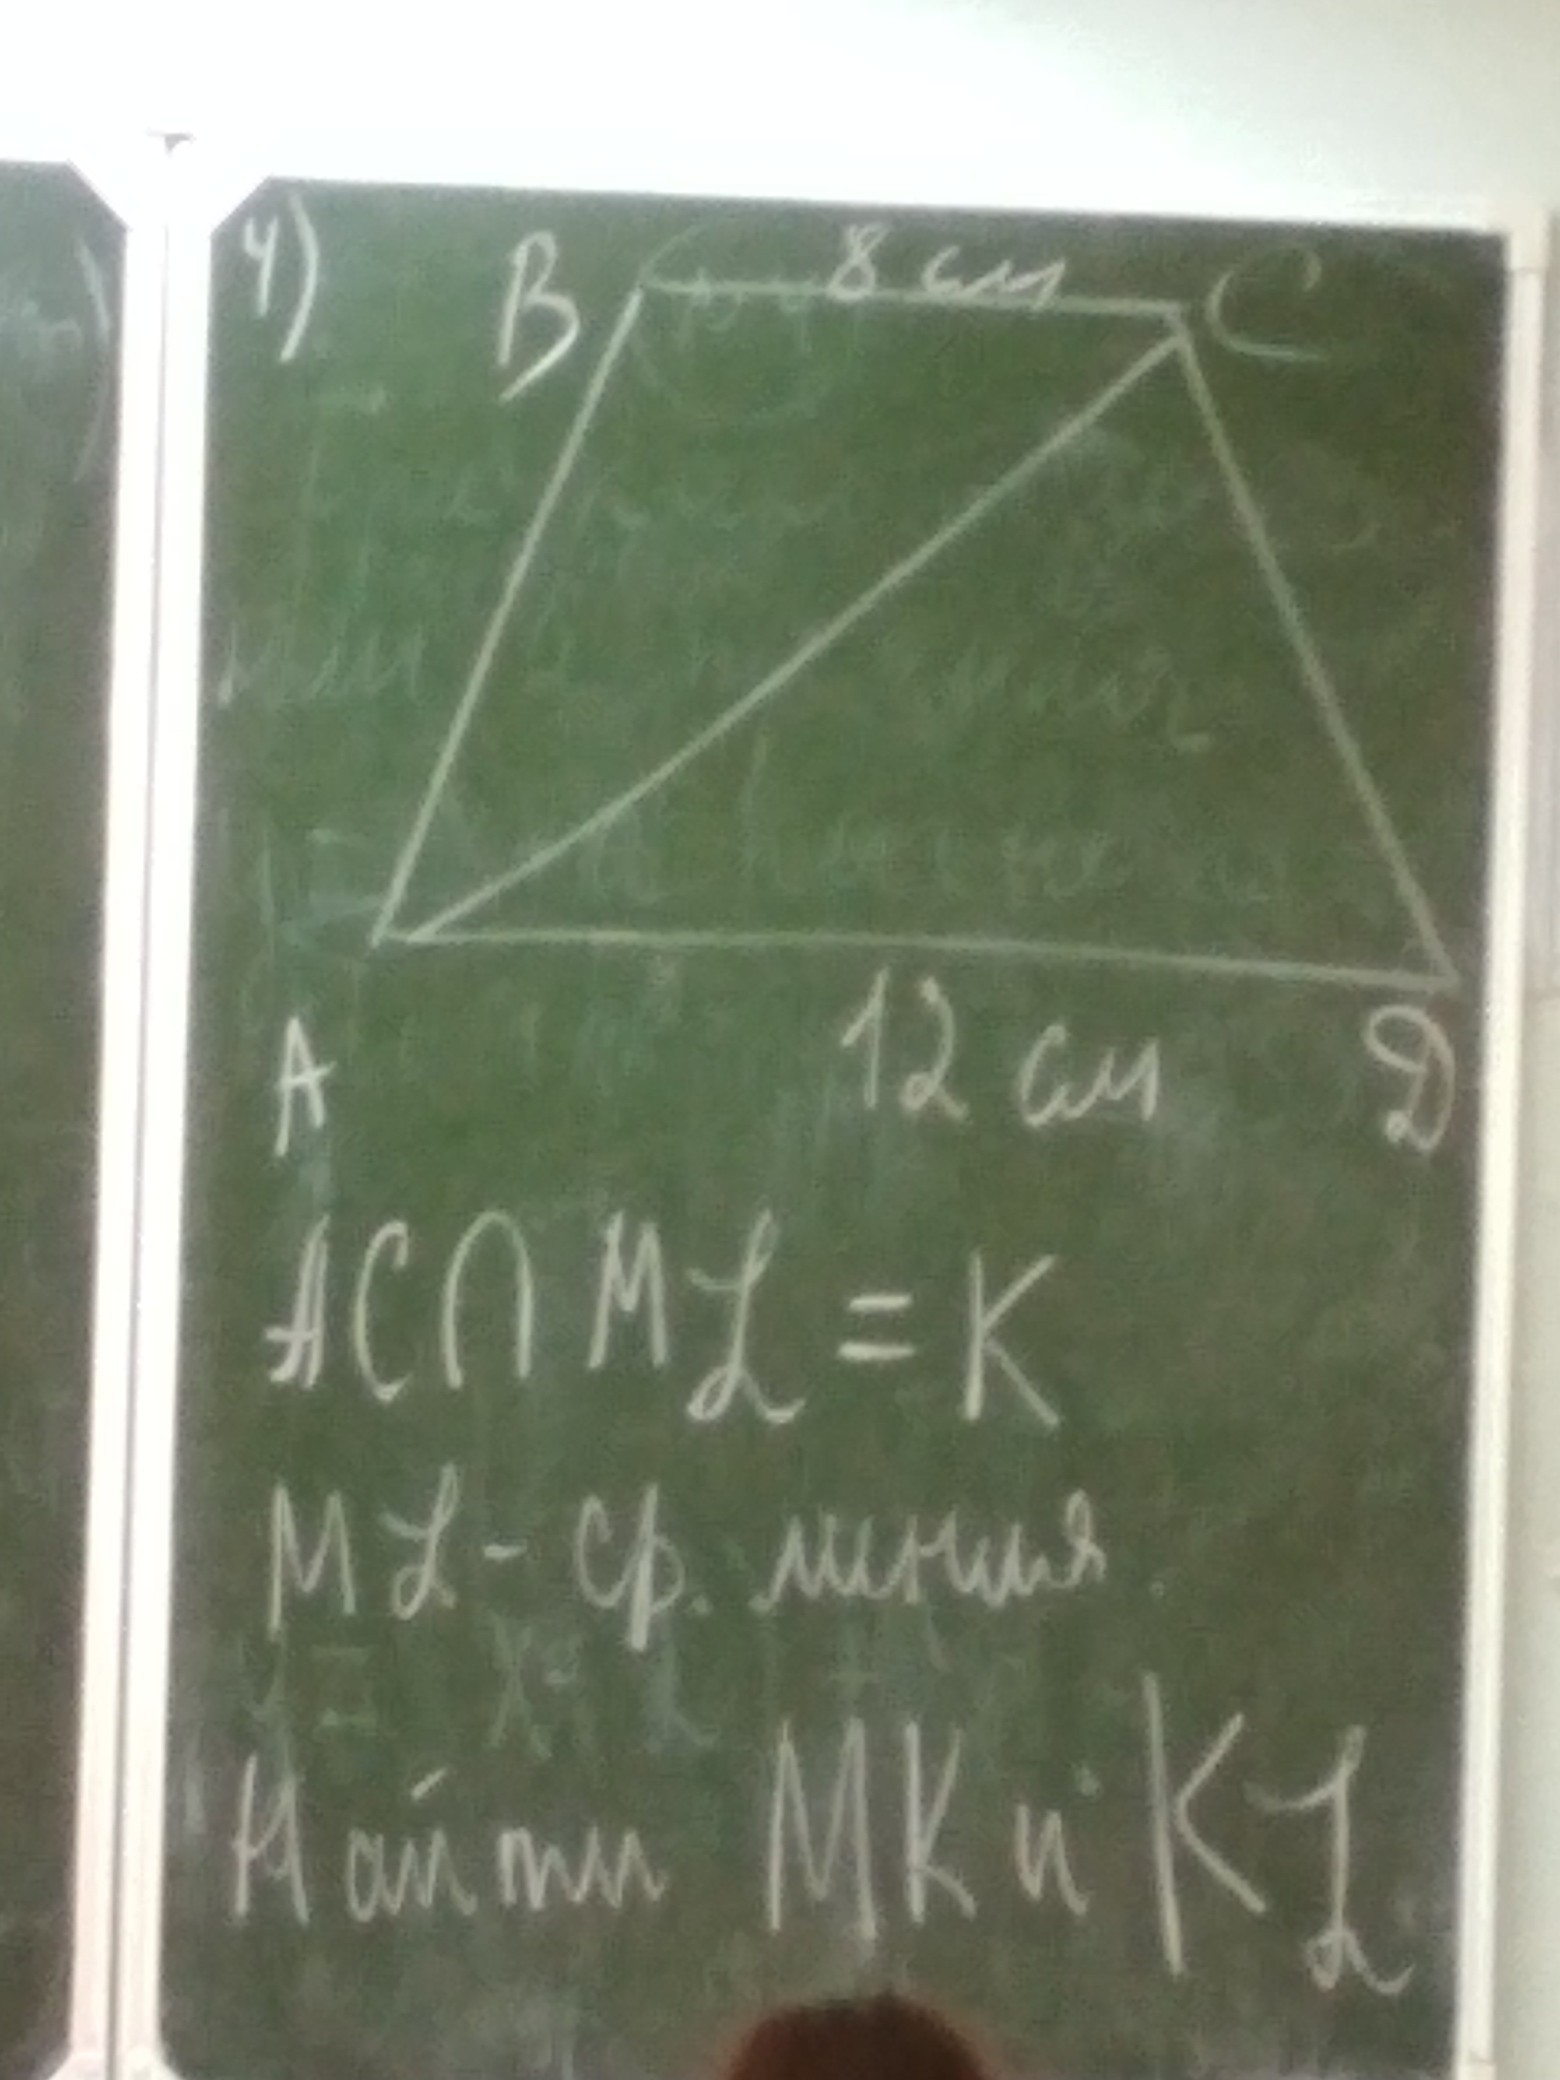 4) B 8 см C
A 12 см D
AC∩ML=K
ML - ср. линия
Найти MK и KL